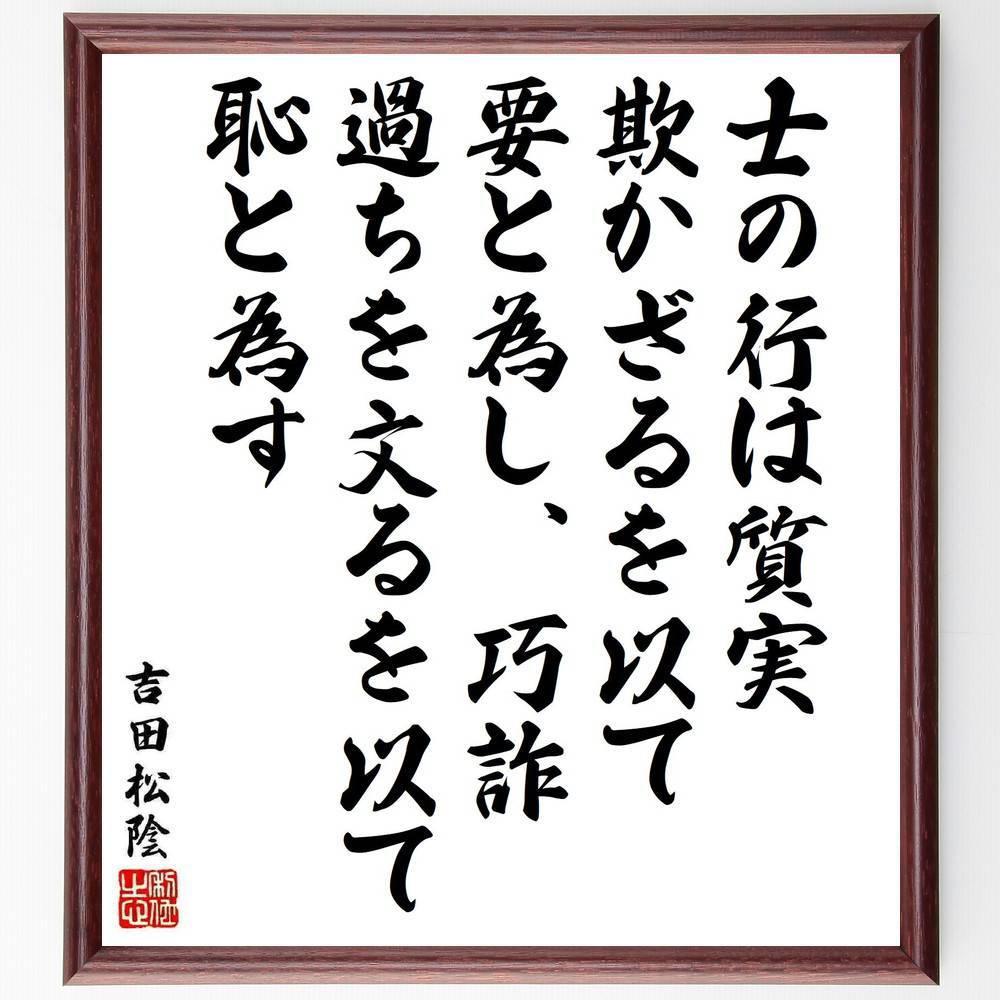 士の行は質実
欺かざるを以て
要と為し、巧詐
過ちを文るを以て
恥と為す
吉田松陰